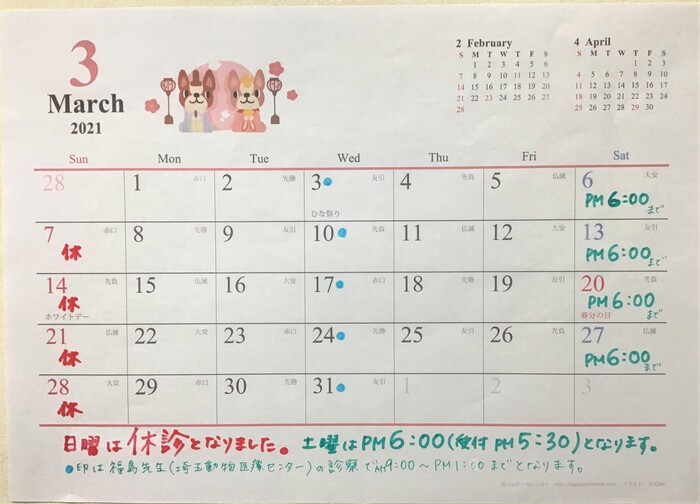 3
March
2021
2 February
S M T W T F S
1 2 3 4 5 6
7 8 9 10 11 12 13
14 15 16 17 18 19 20
21 22 23 24 25 26 27
28
4 April
S M T W T F S
1 2 3
4 5 6 7 8 9 10
11 12 13 14 15 16 17
18 19 20 21 22 23 24
25 26 27 28 29 30
Sun Mon Tue Wed Thu Fri Sat
28 1 赤口 2 先勝 3 ● 友引 4 先負 5 仏滅 6 大安
ひな祭り PM 6:00 まで
7 赤口 8 先勝 9 友引 10 ● 先負 11 仏滅 12 大安 13 赤口
休 PM 6:00 まで
14 先負 15 仏滅 16 大安 17 ● 赤口 18 先勝 19 友引 20 先負
休 PM 6:00 まで
ホワイトデー 春分の日
21 仏滅 22 大安 23 赤口 24 ● 先勝 25 友引 26 先負 27 仏滅
休 PM 6:00 まで
28 大安 29 赤口 30 先勝 31 ● 友引 1 2 3
休
日曜は休診となりました。土曜はPM6:00(受付PM5:30)となります。
●印は福島先生(埼玉動物医療センター)の診察でAM9:00〜PM1:00までとなります。